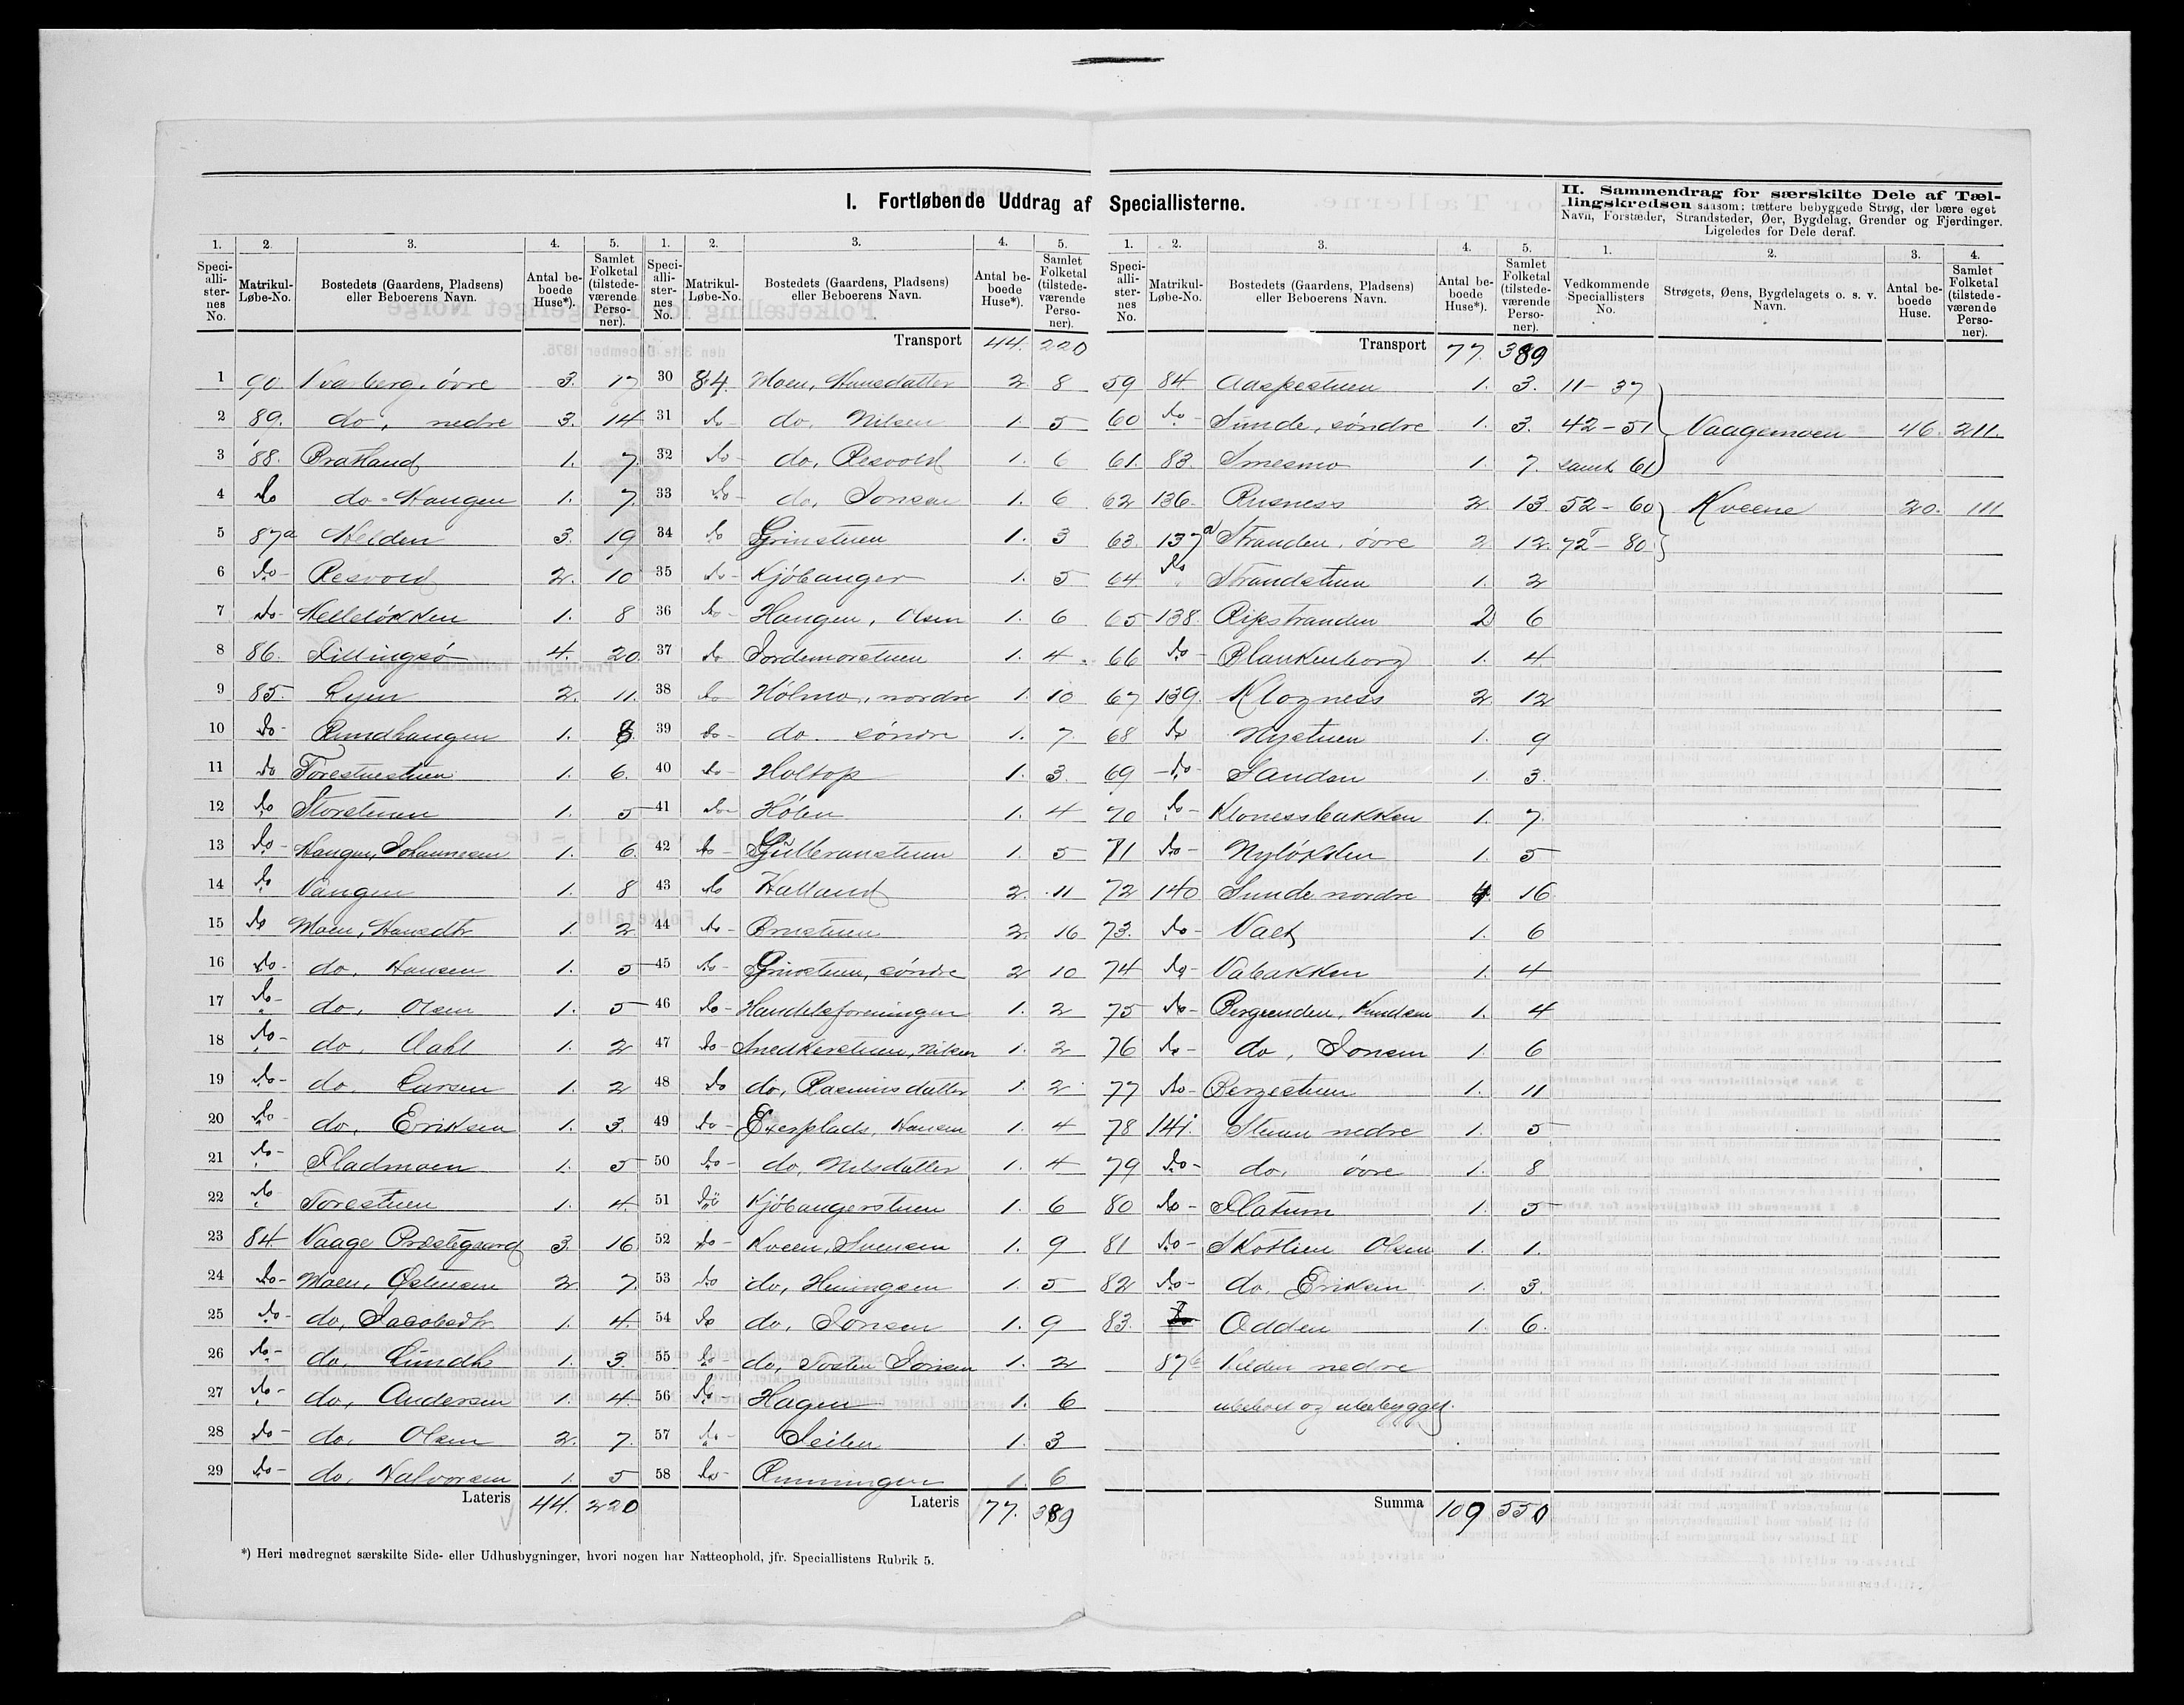 I. Fortløbende Uddrag af Speciallisterne.
II. Sammendrag for særskilte Dele af Tællingskredsen saasom; tættere bebyggede Strøg, der bære eget
Navn, Forstæder, Strandsteder, Øer, Bygdelag, Grender og Fjerdinger.
Ligeledes for Dele deraf.
1. 2. 3. 4. 5. 1. 2. 3. 4. 5. 1. 2. 3. 4. 5. 1. 2. 3. 4.
Speciallisternes No. Matrikul-Løbe-No. Bostedets (Gaardens, Pladsens) eller Beboerens Navn. Antal beboede Huse*). Samlet Folketal (tilstedeværende Personer).
Speciallisternes No. Matrikul-Løbe-No. Bostedets (Gaardens, Pladsens) eller Beboerens Navn. Antal beboede Huse*). Samlet Folketal (tilstedeværende Personer).
Speciallisternes No. Matrikul-Løbe-No. Bostedets (Gaardens, Pladsens) eller Beboerens Navn. Antal beboede Huse*). Samlet Folketal (tilstedeværende Personer).
Vedkommende Speciallisters No. Strøgets, Øens, Bygdelagets o. s. v. Navn. Antal beboede Huse. Samlet Folketal (tilstedeværende Personer).
1 90. Kvarberg, övre 3. 17
2 89. do, nedre 3. 14
3 88. Bratland 1. 7.
4 do do-Haugen 1. 7.
5 87a Helden 3. 19
6 do- Resvold 2. 10
7 do- Hellelökken 1. 8
8 86. Lillingsö 4. 20
9 85. Lyen 2. 11.
10 do- Rundhaugen 1. 8.
11 do Forestuestuen 1. 6.
12 do Storstuen 1. 5
13 do- Haugen, Johannesen 1. 6.
14 do Vangen 1. 8
15 do Moen, Hansdtr 1. 2
16 do- do, Hansen 1. 5
17 do- do, Olsen 1. 5
18 do- do, Dahl 1. 2
19 do- do, Larsen 1. 2
20 do- do, Eriksen 1. 3.
21 do- Fladmoen 1. 5
22 do Torestuen 1. 4.
23 84. Vaage Præstegaard 3. 16
24 do- Moen, Östensen 2. 7.
25 do- do, Jacobsdtr 1. 4.
26 do- do, Lundh 1. 3.
27 do- do, Andersen 1. 4.
28 do- do, Olsen 2. 7.
29 do- do, Halvorsen 1. 5
Lateris 44. 220
Transport 44. 220
30 84. Moen, Hansdatter 2 8
31 do- do, Nilsen 1. 5
32 do- do, Resvold 1. 6
33 do- do, Jonsen 1. 6
34 do Grinstuen 1. 3
35 do- Kjöbanger 1. 5
36 do- Haugen, Olsen 1. 6
37 do Jordemorstuen 1. 4.
38 do Hölmo, nordre 1. 10
39 do- do. söndre 1. 7
40 do- Holtop 1. 3.
41 do- Hölen 1. 4
42 do- Gülleranstuen 1. 5
43 do Halland 2. 11
44 do- Brustuen 2. 16
45 do- Grinstuen, söndre 2 10
46 do- Handelsforeningen 1. 2
47 do- Snedkerstuen, Nilsen 1. 2
48 do do, Rasmusdatter 1. 2
49 do- Exerplads, Hansen 1. 4
50 do- do, Nilsdatter 1. 4
51 do Kjöbangerstuen 1. 6
52 do- Kveen, Svensen 1. 9
53 do do, Henningsen 1. 5
54 do do, Jonsen 1. 9
55 do- do, Tosten Jonsen 1. 2
56 do- Hagen 1. 6
57 do- Teilen 1. 3
58 do- Rumningen 1. 6
Lateris 77. 389
Transport 77. 389
59 84 Aaspestuen 1. 3.
60 do- Sunde, söndre 1. 3.
61. 83. Smesmo 1. 7.
62 136. Rusness 2. 13
63. 137a Stranden, övre 2 12.
64. do Strandstuen 1. 2
65 138. Ripstranden 2 6
66 do- Blankenborg 1. 4.
67 139. Klogness 2. 12
68 do Nystuen 1. 9
69 -do- Sanden 1. 3.
70 do- Klonessbakken 1. 7.
71 do- Nylökken 1. 5
72 140 Sunde nordre 4. 16
73. do- Valt 1. 6
74 do- Vabakken 1. 4
75 do- Bergeenden, Knudsen 1. 4
76 do- do, Jonsen 1. 6
77 do- Bergestuen 1. 11
78 141. Stuen nedre 1. 5
79 do- do, övre 1. 8
80 do- Flatum 1. 5
81 do- Skotlien Olsen 1. 1.
82 do- do, Eriksen 1. 3.
83. do Odden 1. 6.
87b Helden nedre
ubeboet og ubebygget.
Summa 109 550
11-37
42-51 Vaagemoen 46. 211.
samt 61
52-60 Kveene 20. 111
72-80
*) Heri medregnet særskilte Side- eller Udhusbygninger, hvori nogen har Natteophold, jfr. Speciallistens Rubrik 5.